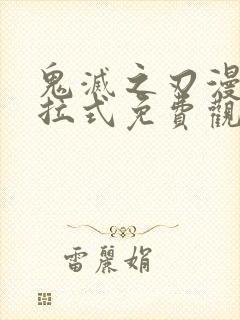 鬼滅之刃漫
拉式免費觀
雷麗娟